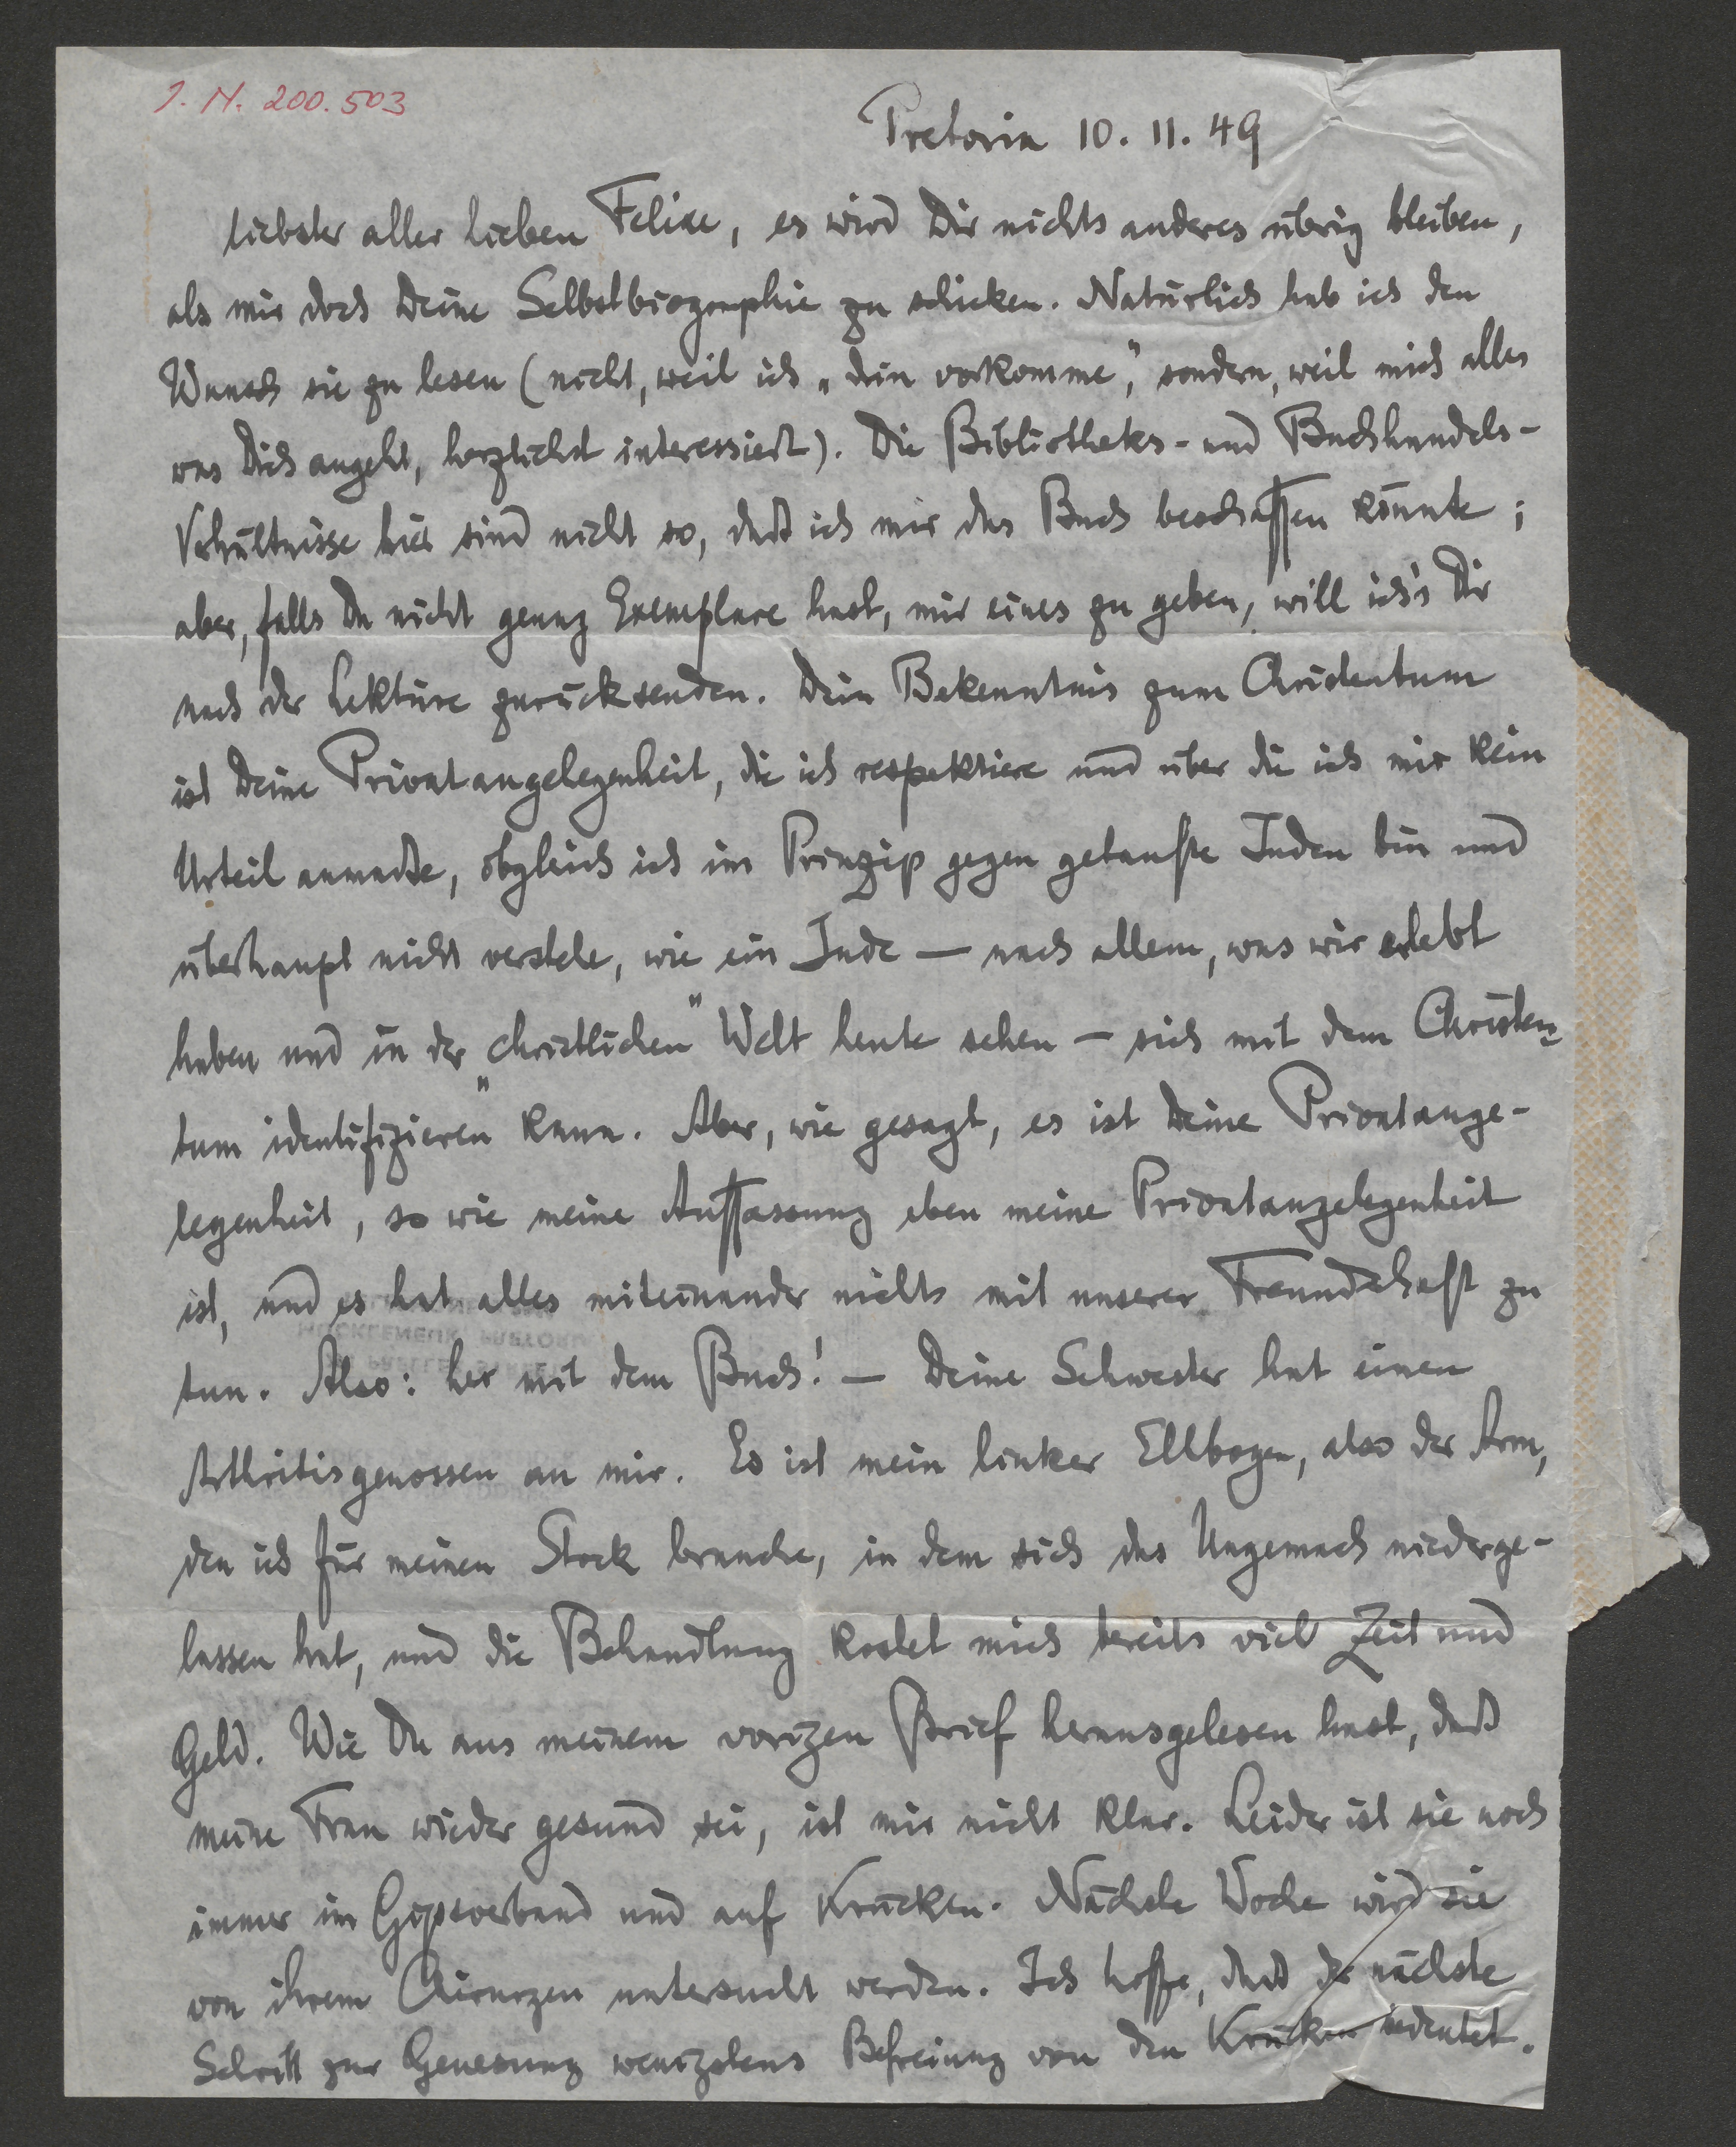 I. N. 200.503
Pretoria 10. 11. 49
Liebster aller lieben Felixe, es wird Dir nichts anderes übrig bleiben,
als mir doch Deine Selbstbiographie zu schicken. Natürlich hab ich den
Wunsch sie zu lesen (nicht, weil ich „drin vorkomme“, sondern, weil mich alles
was Dich angeht, herzlichst interessiert). Die Bibliotheks- und Buchhandels-
Verhältnisse hier sind nicht so, daß ich mir das Buch beschaffen könnte;
aber, falls Du nicht genug Exemplare hast, mir eines zu geben, will ich's Dir
nach der Lektüre zurücksenden. Dein Bekenntnis zum Christentum
ist Deine Privatangelegenheit, die ich respektiere und über die ich mir kein
Urteil anmaße, obgleich ich im Prinzip gegen getaufte Juden bin und
überhaupt nicht verstehe, wie ein Jude — nach allem, was wir erlebt
haben und in der „christlichen“ Welt heute sehen — sich mit dem Christen-
tum „identifizieren“ kann. Aber, wie gesagt, es ist Deine Privatange-
legenheit, so wie meine Auffassung eben meine Privatangelegenheit
ist, und es hat alles miteinander nichts mit unserer Freundschaft zu
tun. Also: her mit dem Buch! — Deine Schwester hat einen
Arthritisgenossen an mir. Es ist mein linker Ellbogen, also der Arm,
den ich für meinen Stock brauche, in dem sich das Ungemach niederge-
lassen hat, und die Behandlung kostet mich bereits viel Zeit und
Geld. Wie Du aus meinem vorigen Brief herausgelesen hast, daß
meine Frau wieder gesund sei, ist mir nicht klar. Leider ist sie noch
immer im Gipsverband und auf Krücken. Nächste Woche wird sie
von ihrem Chirurgen untersucht werden. Ich hoffe, daß der nächste
Schritt zur Genesung wenigstens Befreiung von den Krücken bedeutet.